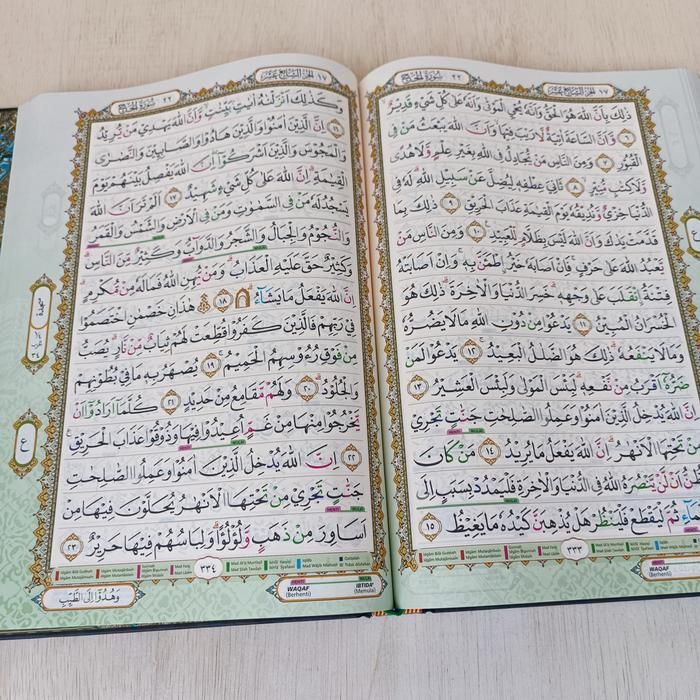 ١٧ الجزء السابع عشر سورة الحج ٢٢
ذٰلِكَ بِاَنَّ اللّٰهَ هُوَ الْحَقُّ وَاَنَّهٗ يُحْيِ الْمَوْتٰى وَاَنَّهٗ عَلٰى كُلِّ شَيْءٍ قَدِيْرٌ
٦ وَّاَنَّ السَّاعَةَ اٰتِيَةٌ لَّا رَيْبَ فِيْهَا وَاَنَّ اللّٰهَ يَبْعَثُ مَنْ فِى
الْقُبُوْرِ ٧ وَمِنَ النَّاسِ مَنْ يُّجَادِلُ فِى اللّٰهِ بِغَيْرِ عِلْمٍ وَّلَا هُدًى
وَّلَا كِتٰبٍ مُّنِيْرٍ ٨ ثَانِيَ عِطْفِهٖ لِيُضِلَّ عَنْ سَبِيْلِ اللّٰهِ لَهٗ فِى
الدُّنْيَا خِزْيٌ وَّنُذِيْقُهٗ يَوْمَ الْقِيٰمَةِ عَذَابَ الْحَرِيْقِ ٩ ذٰلِكَ بِمَا
قَدَّمَتْ يَدٰكَ وَاَنَّ اللّٰهَ لَيْسَ بِظَلَّامٍ لِّلْعَبِيْدِ ١٠ وَمِنَ النَّاسِ مَنْ
يَّعْبُدُ اللّٰهَ عَلٰى حَرْفٍ فَاِنْ اَصَابَهٗ خَيْرُ اطْمَاَنَّ بِهٖ وَاِنْ اَصَابَتْهُ
فِتْنَةُ انْقَلَبَ عَلٰى وَجْهِهٖ خَسِرَ الدُّنْيَا وَالْاٰخِرَةَ ذٰلِكَ هُوَ
الْخُسْرَانُ الْمُبِيْنُ ١١ يَدْعُوْا مِنْ دُوْنِ اللّٰهِ مَا لَا يَضُرُّهٗ
وَمَا لَا يَنْفَعُهٗ ذٰلِكَ هُوَ الضَّلٰلُ الْبَعِيْدُ ١٢ يَدْعُوْا لَمَنْ
ضَرُّهٗٓ اَقْرَبُ مِنْ نَّفْعِهٖ لَبِئْسَ الْمَوْلٰى وَلَبِئْسَ الْعَشِيْرُ ١٣
اِنَّ اللّٰهَ يُدْخِلُ الَّذِيْنَ اٰمَنُوْا وَعَمِلُوا الصّٰلِحٰتِ جَنّٰتٍ تَجْرِيْ
مِنْ تَحْتِهَا الْاَنْهٰرُ اِنَّ اللّٰهَ يَفْعَلُ مَا يُرِيْدُ ١٤ مَنْ كَانَ
يَظُنُّ اَنْ لَّنْ يَّنْصُرَهُ اللّٰهُ فِى الدُّنْيَا وَالْاٰخِرَةِ فَلْيَمْدُدْ بِسَبَبٍ اِلَى
السَّمَاۤءِ ثُمَّ لْيَقْطَعْ فَلْيَنْظُرْ هَلْ يُذْهِبَنَّ كَيْدُهٗ مَا يَغِيْظُ ١٥
٣٣٣
WAQAF
(Berhenti)
١٧ الجزء السابع عشر سورة الحج ٢٢
وَكَذٰلِكَ اَنْزَلْنٰهُ اٰيٰتٍۢ بَيِّنٰتٍ وَّاَنَّ اللّٰهَ يَهْدِيْ مَنْ يُّرِيْدُ
١٦ اِنَّ الَّذِيْنَ اٰمَنُوْا وَالَّذِيْنَ هَادُوْا وَالصَّابِـِٕيْنَ وَالنَّصٰرٰى
وَالْمَجُوْسَ وَالَّذِيْنَ اَشْرَكُوْٓا اِنَّ اللّٰهَ يَفْصِلُ بَيْنَهُمْ يَوْمَ
الْقِيٰمَةِ اِنَّ اللّٰهَ عَلٰى كُلِّ شَيْءٍ شَهِيْدٌ ١٧ اَلَمْ تَرَ اَنَّ اللّٰهَ
يَسْجُدُ لَهٗ مَنْ فِى السَّمٰوٰتِ وَمَنْ فِى الْاَرْضِ وَالشَّمْسُ وَالْقَمَرُ
وَالنُّجُوْمُ وَالْجِبَالُ وَالشَّجَرُ وَالدَّوَاۤبُّ وَكَثِيْرٌ مِّنَ النَّاسِ
وَكَثِيْرٌ حَقَّ عَلَيْهِ الْعَذَابُ وَمَنْ يُّهِنِ اللّٰهُ فَمَا لَهٗ مِنْ مُّكْرِمٍ
اِنَّ اللّٰهَ يَفْعَلُ مَا يَشَاۤءُ ۩ ١٨ هٰذٰنِ خَصْمٰنِ اخْتَصَمُوْا
فِيْ رَبِّهِمْ فَالَّذِيْنَ كَفَرُوْا قُطِّعَتْ لَهُمْ ثِيَابٌ مِّنْ نَّارٍ يُصَبُّ
مِنْ فَوْقِ رُءُوْسِهِمُ الْحَمِيْمُ ١٩ يُصْهَرُ بِهٖ مَا فِيْ بُطُوْنِهِمْ
وَالْجُلُوْدُ ٢٠ وَلَهُمْ مَّقَامِعُ مِنْ حَدِيْدٍ ٢١ كُلَّمَآ اَرَادُوْٓا اَنْ
يَّخْرُجُوْا مِنْهَا مِنْ غَمٍّ اُعِيْدُوْا فِيْهَا وَذُوْقُوْا عَذَابَ الْحَرِيْقِ
٢٢ اِنَّ اللّٰهَ يُدْخِلُ الَّذِيْنَ اٰمَنُوْا وَعَمِلُوا الصّٰلِحٰتِ
جَنّٰتٍ تَجْرِيْ مِنْ تَحْتِهَا الْاَنْهٰرُ يُحَلَّوْنَ فِيْهَا مِنْ
اَسَاوِرَ مِنْ ذَهَبٍ وَّلُؤْلُؤًا وَلِبَاسُهُمْ فِيْهَا حَرِيْرٌ ٢٣
٣٣٤
WAQAF
(Berhenti)
IBTIDA'
(Memula)
وَهُدُوْٓا اِلَى الطَّيِّبِ
ع